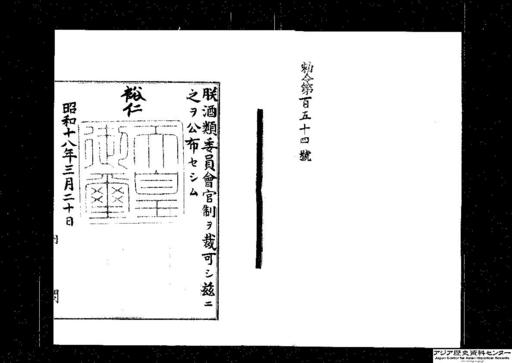 勅令第百五十四號
朕酒類委員會官制ヲ裁可シ茲ニ
之ヲ公布セシム
裕仁
天皇御璽
昭和十八年三月二十日
内閣
アジア歴史資料センター
Japan Center for Asian Historical Records